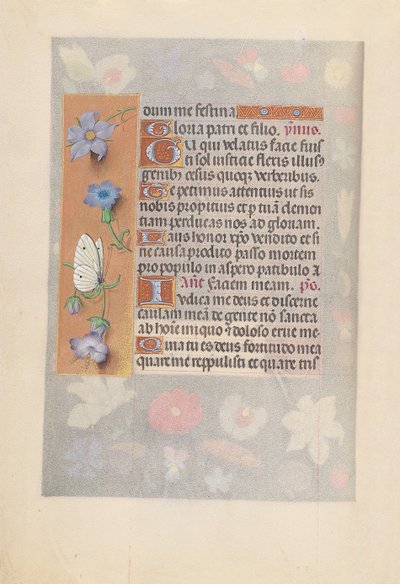 dum me festina
Gloria patri et filio. ymnus.
Qui velatus facie fuis
ti sol iusticie flexis illusꝰ
genibꝰ cesus quoqꝫ verberibus.
Te petimus attentius ut sis
nobis propitius et p tuā clemen
tiam perducas nos ad gloriam.
Laus honor xp̄o vendito et si
ne causa prodito passo mortem
pro populo in aspero patibulo A
Añe Faciem meam. p̄s.
Iudica me deus et discerne
causam meā de gente nō sancta
ab hoīe iniquo ⁊ doloso erue me
Quia tu es deus fortitudo mea
quare me reppulisti et quare tris